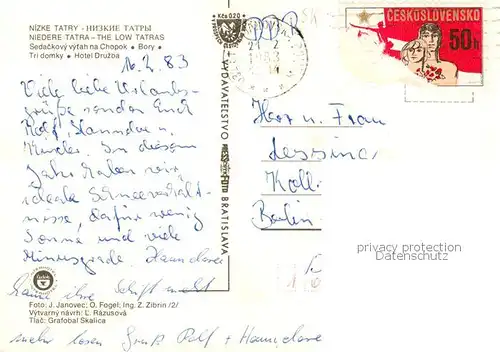 NÍZKE TATRY · НИЗКИЕ ТАТРЫ
NIEDERE TATRA - THE LOW TATRAS
Sedačkový výťah na Chopok • Bory •
Tri domky • Hotel Družba
Kčs 0,20
ČESKOSLOVENSKO
50 h
16.2.83
Viele liebe Urlaubs-
grüße senden Euch
Rolf, Hannelore u.
Kinder. In diesem
Jahr haben wir
ideale Schneeverhält-
nisse, dafür wenig
Sonne und viele
Minusgrade. Hannelore
kann ihre Schrift nicht
mehr lesen Gruß Rolf + Hannelore
Herr u. Frau
Berlin
VYDAVATEĽSTVO PRESSFOTO BRATISLAVA
Foto: J. Janovec; O. Fogel; Ing. Z. Zibrin /2/
Výtvarný návrh: Ľ. Rázusová
Tlač: Grafobal Skalica
privacy protection
Datenschutz